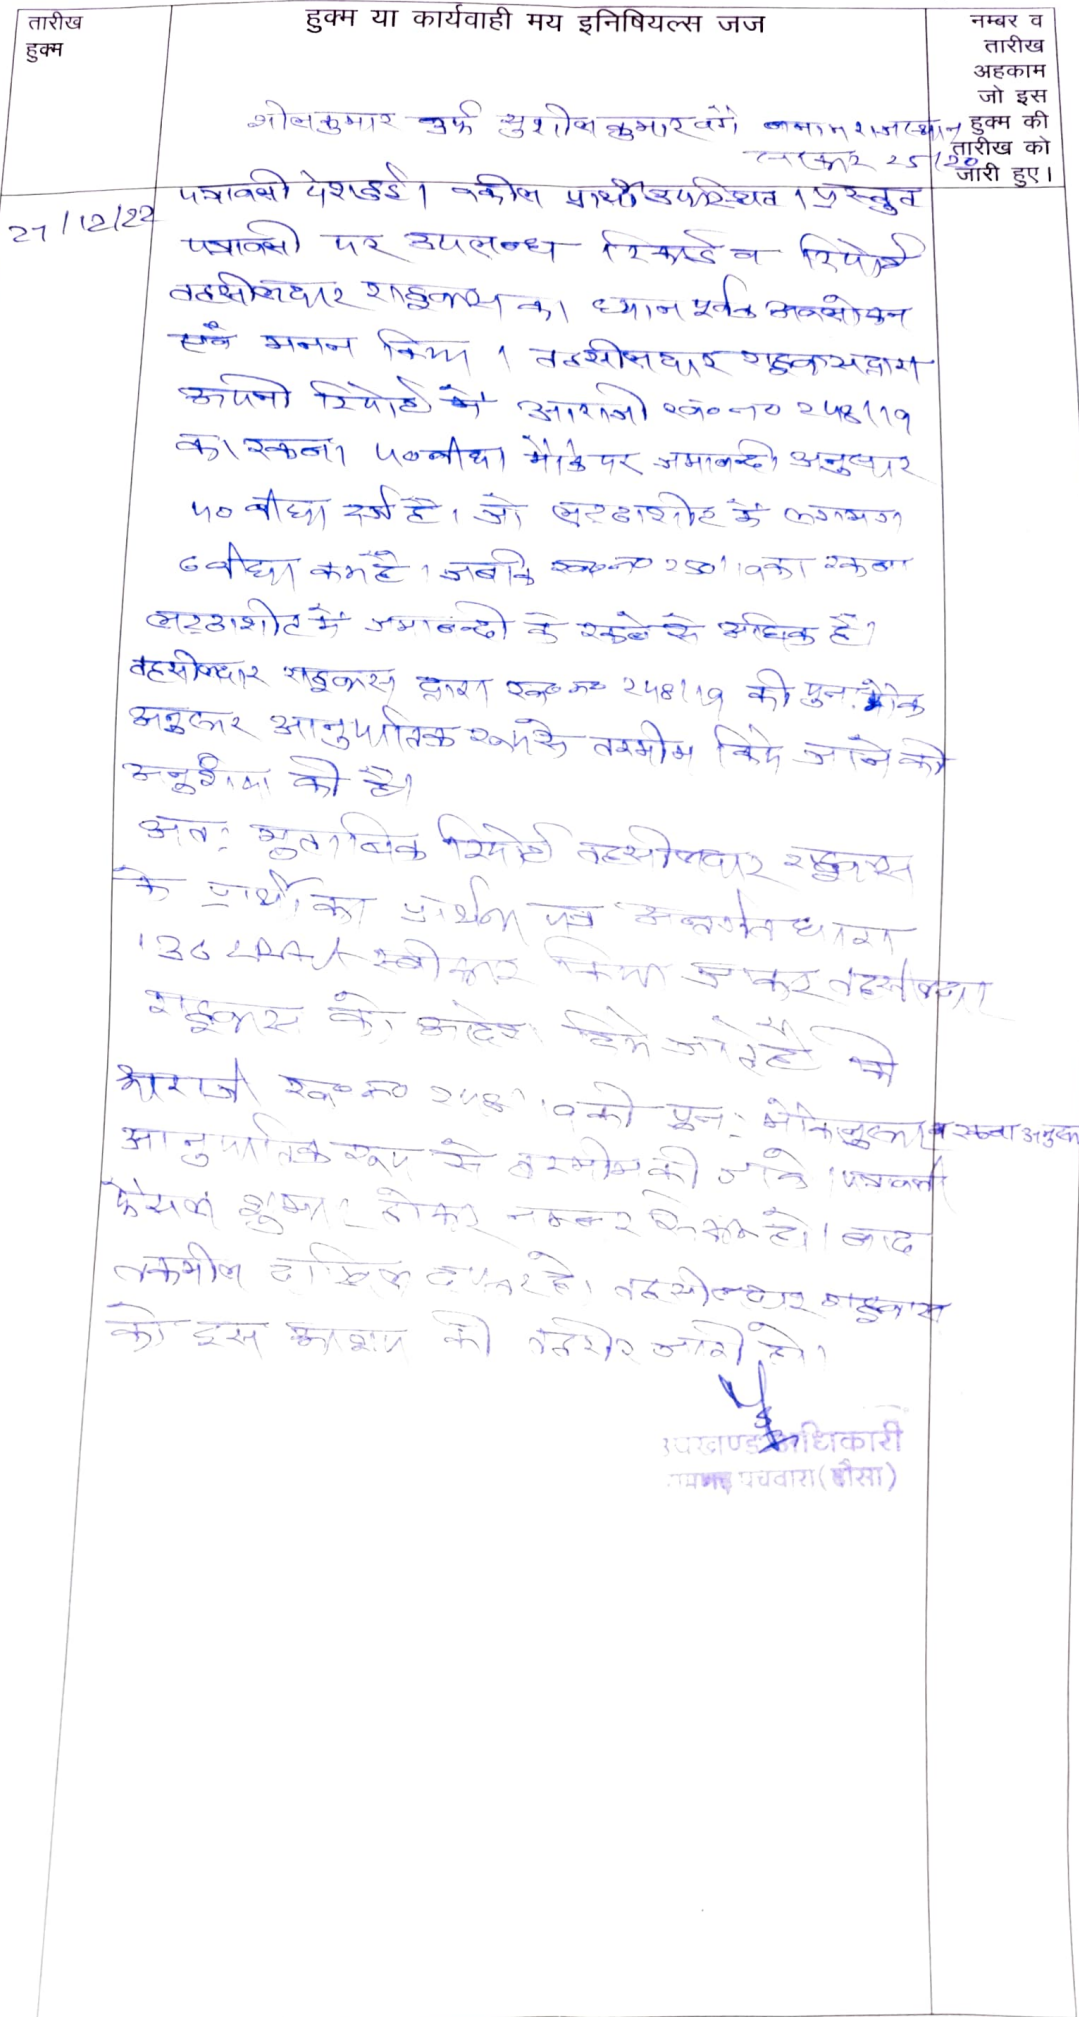 तारीख
हुक्म
हुक्म या कार्यवाही मय इनिषियल्स जज
नम्बर व
तारीख
अहकाम
जो इस
हुक्म की
तारीख को
जारी हुए।
शीलकुमार उर्फ सुशील कुमार वगै० बनाम राजस्थान
सरकार 25/20
27/12/22
पत्रावली पेश हुई। वकील प्रार्थी उपस्थित। प्रस्तुत
पत्रावली पर उपलब्ध रिकार्ड व रिपोर्ट
तहसीलदार राहुवास का ध्यान पूर्वक अवलोकन
एवं मनन किया। तहसीलदार राहुवास द्वारा
अपनी रिपोर्ट में आराजी ख०न० 248/19
का रकबा 40 बीघा मौके पर जमाबन्दी अनुसार
40 बीघा दर्ज है। जो लट्ठाशीट में लगभग
6 बीघा कम है। जबकि ख०न० 250/19 का रकबा
लट्ठाशीट में जमाबन्दी के रकबे से अधिक है।
तहसीलदार राहुवास द्वारा ख०न० 248/19 की पुनः मौके
अनुसार आनुपातिक रूप से तरमीम किये जाने की
अनुशंषा की है।
अतः मुताबिक रिपोर्ट तहसीलदार राहुवास
के प्रार्थी का प्रार्थना पत्र अन्तर्गत धारा
136 LRA स्वीकार किया जाकर तहसीलदार
राहुवास को आदेश दिये जाते है की
आराजी ख०न० 248/19 की पुनः मौके व रकबा अनुसार
आनुपातिक रूप से तरमीम की जावे। पत्रावली
फैसल शुमार होकर नम्बर से कम हो। बाद
तकमील दाखिल दफ्तर हो। तहसीलदार राहुवास
को इस आशय की तहरीर जारी हो।
उपखण्ड अधिकारी
पचवारा (दौसा)